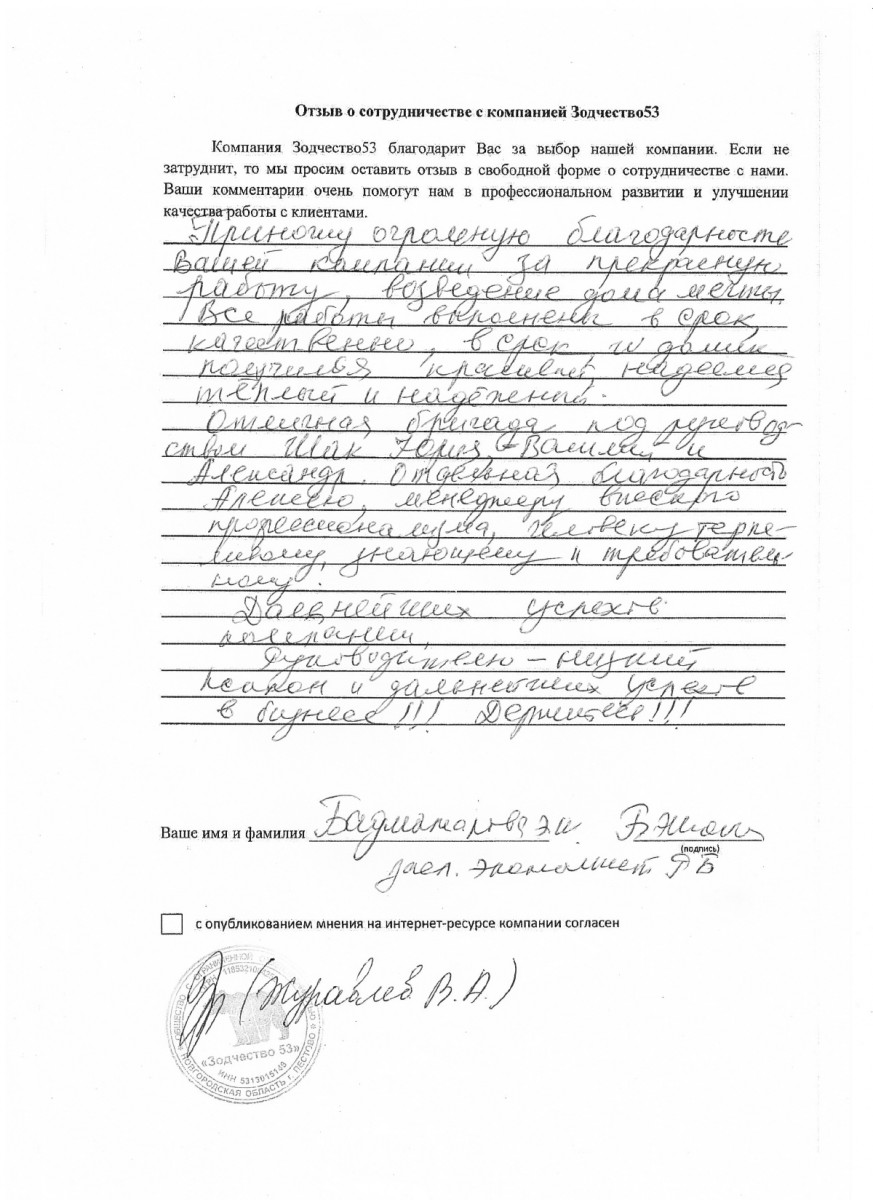 Отзыв о сотрудничестве с компанией Зодчество53
Компания Зодчество53 благодарит Вас за выбор нашей компании. Если не
затруднит, то мы просим оставить отзыв в свободной форме о сотрудничестве с нами.
Ваши комментарии очень помогут нам в профессиональном развитии и улучшении
качества работы с клиентами.
Приношу огромную благодарность
Вашей компании за прекрасную
работу, возведение дома мечты.
Все работы выполнены в срок,
качественно, в срок, и домик
получился красивый, надеемся
тёплый и надёжный.
Отличная бригада под руковод-
ством Шак Юрия, Василий и
Александр. Отдельная благодарность
Алексею, менеджеру высокого
профессионализма, человеку терпе-
ливому, знающему и требователь-
ному.
Дальнейших успехов
компании,
Руководителю – низкий
поклон и дальнейших успехов
в бизнесе!!! Держитесь!!!
Ваше имя и фамилия
(подпись)
засл. экономист РБ
с опубликованием мнения на интернет-ресурсе компании согласен
(Журавлев В.А.)
«Зодчество 53»
НОВГОРОДСКАЯ ОБЛАСТЬ г. ПЕСТОВО